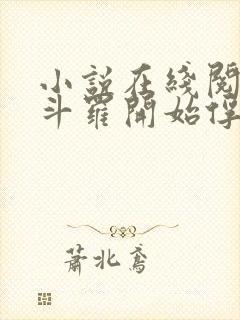 小說在綫閱
斗羅開始俘
蕭北鳶